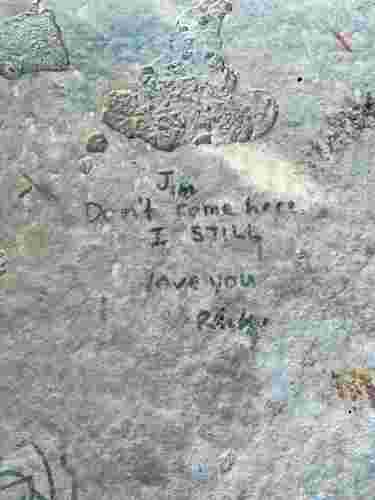 Jim
Don't come here
I STILL
love you